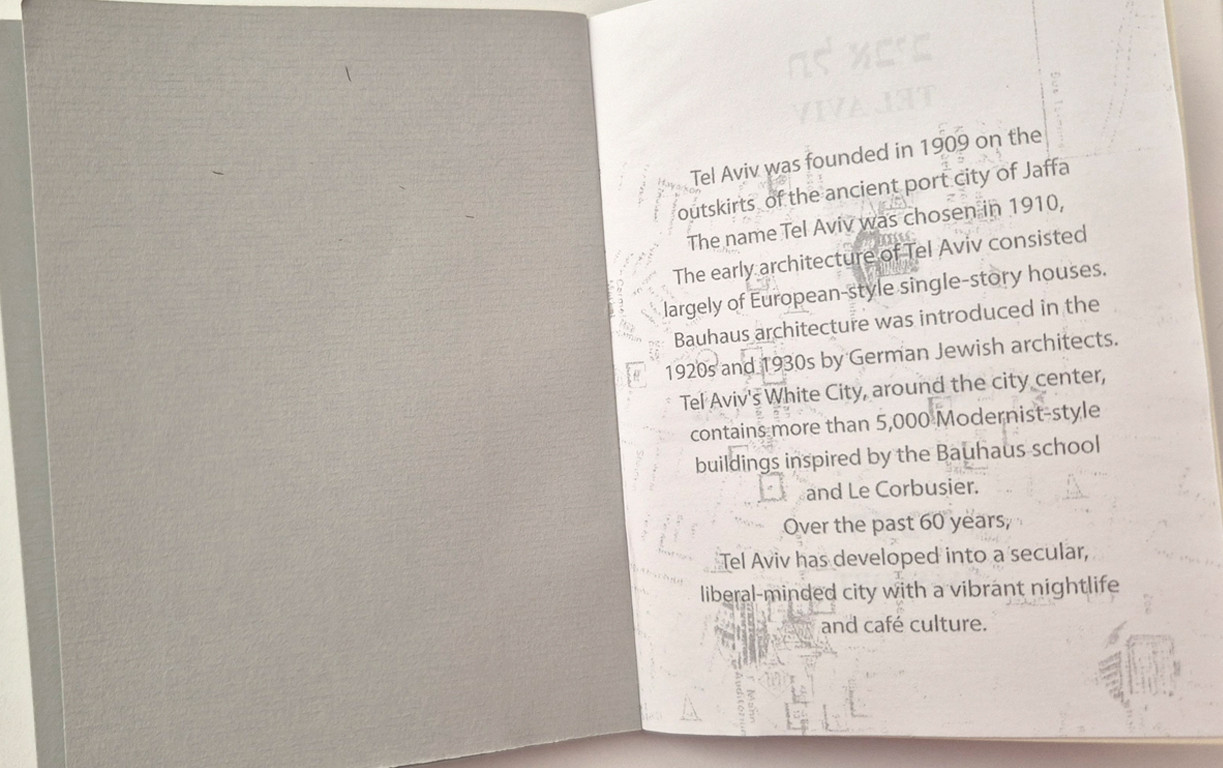 Tel Aviv was founded in 1909 on the
outskirts of the ancient port city of Jaffa
The name Tel Aviv was chosen in 1910,
The early architecture of Tel Aviv consisted
largely of European-style single-story houses.
Bauhaus architecture was introduced in the
1920s and 1930s by German Jewish architects.
Tel Aviv's White City, around the city center,
contains more than 5,000 Modernist-style
buildings inspired by the Bauhaus school
and Le Corbusier.
Over the past 60 years,
Tel Aviv has developed into a secular,
liberal-minded city with a vibrant nightlife
and café culture.